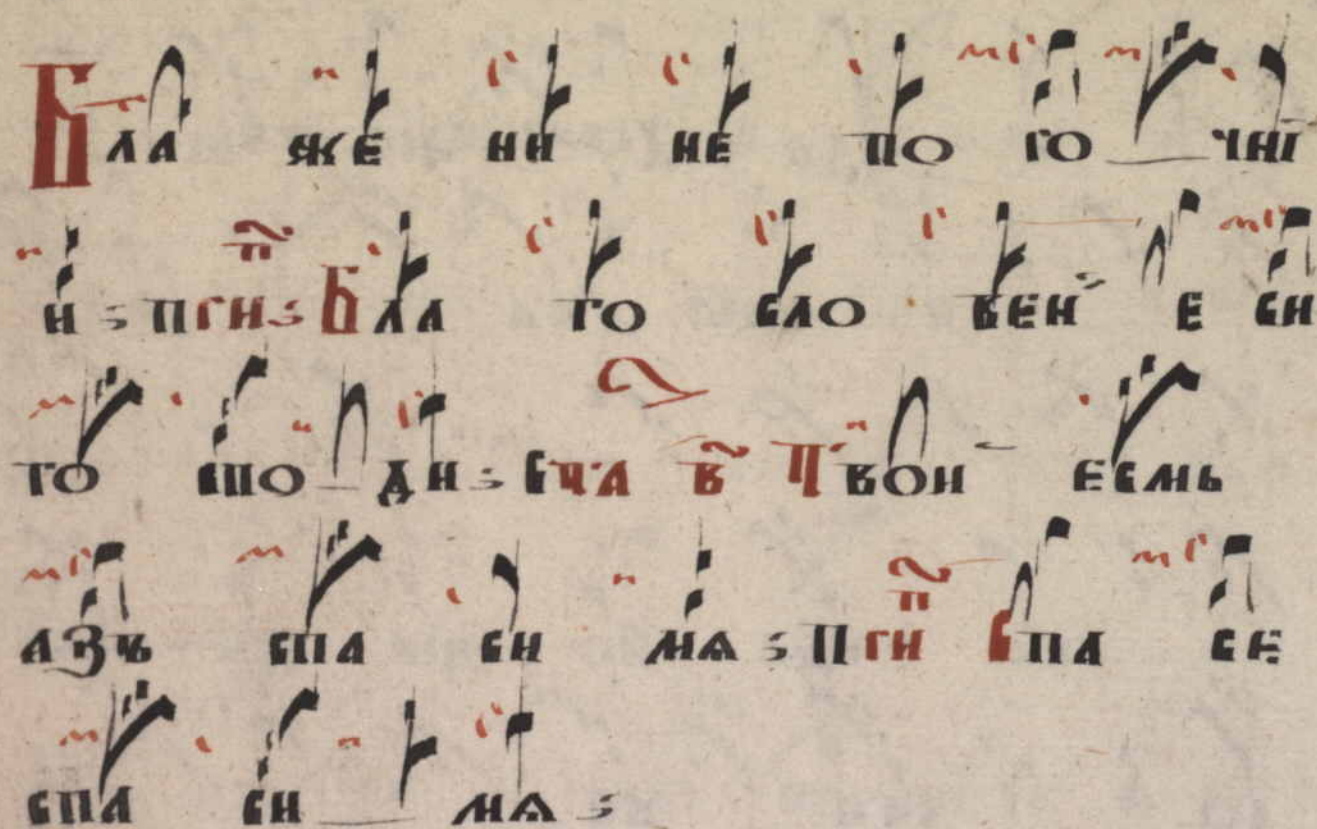 Бла же ни не по го чнї
и : п гн : Бла го сло вен е си
го спо ди : Ста в҃ Твои есмь
азъ спа си мѧ : п гн Спа се
спа си мѧ :